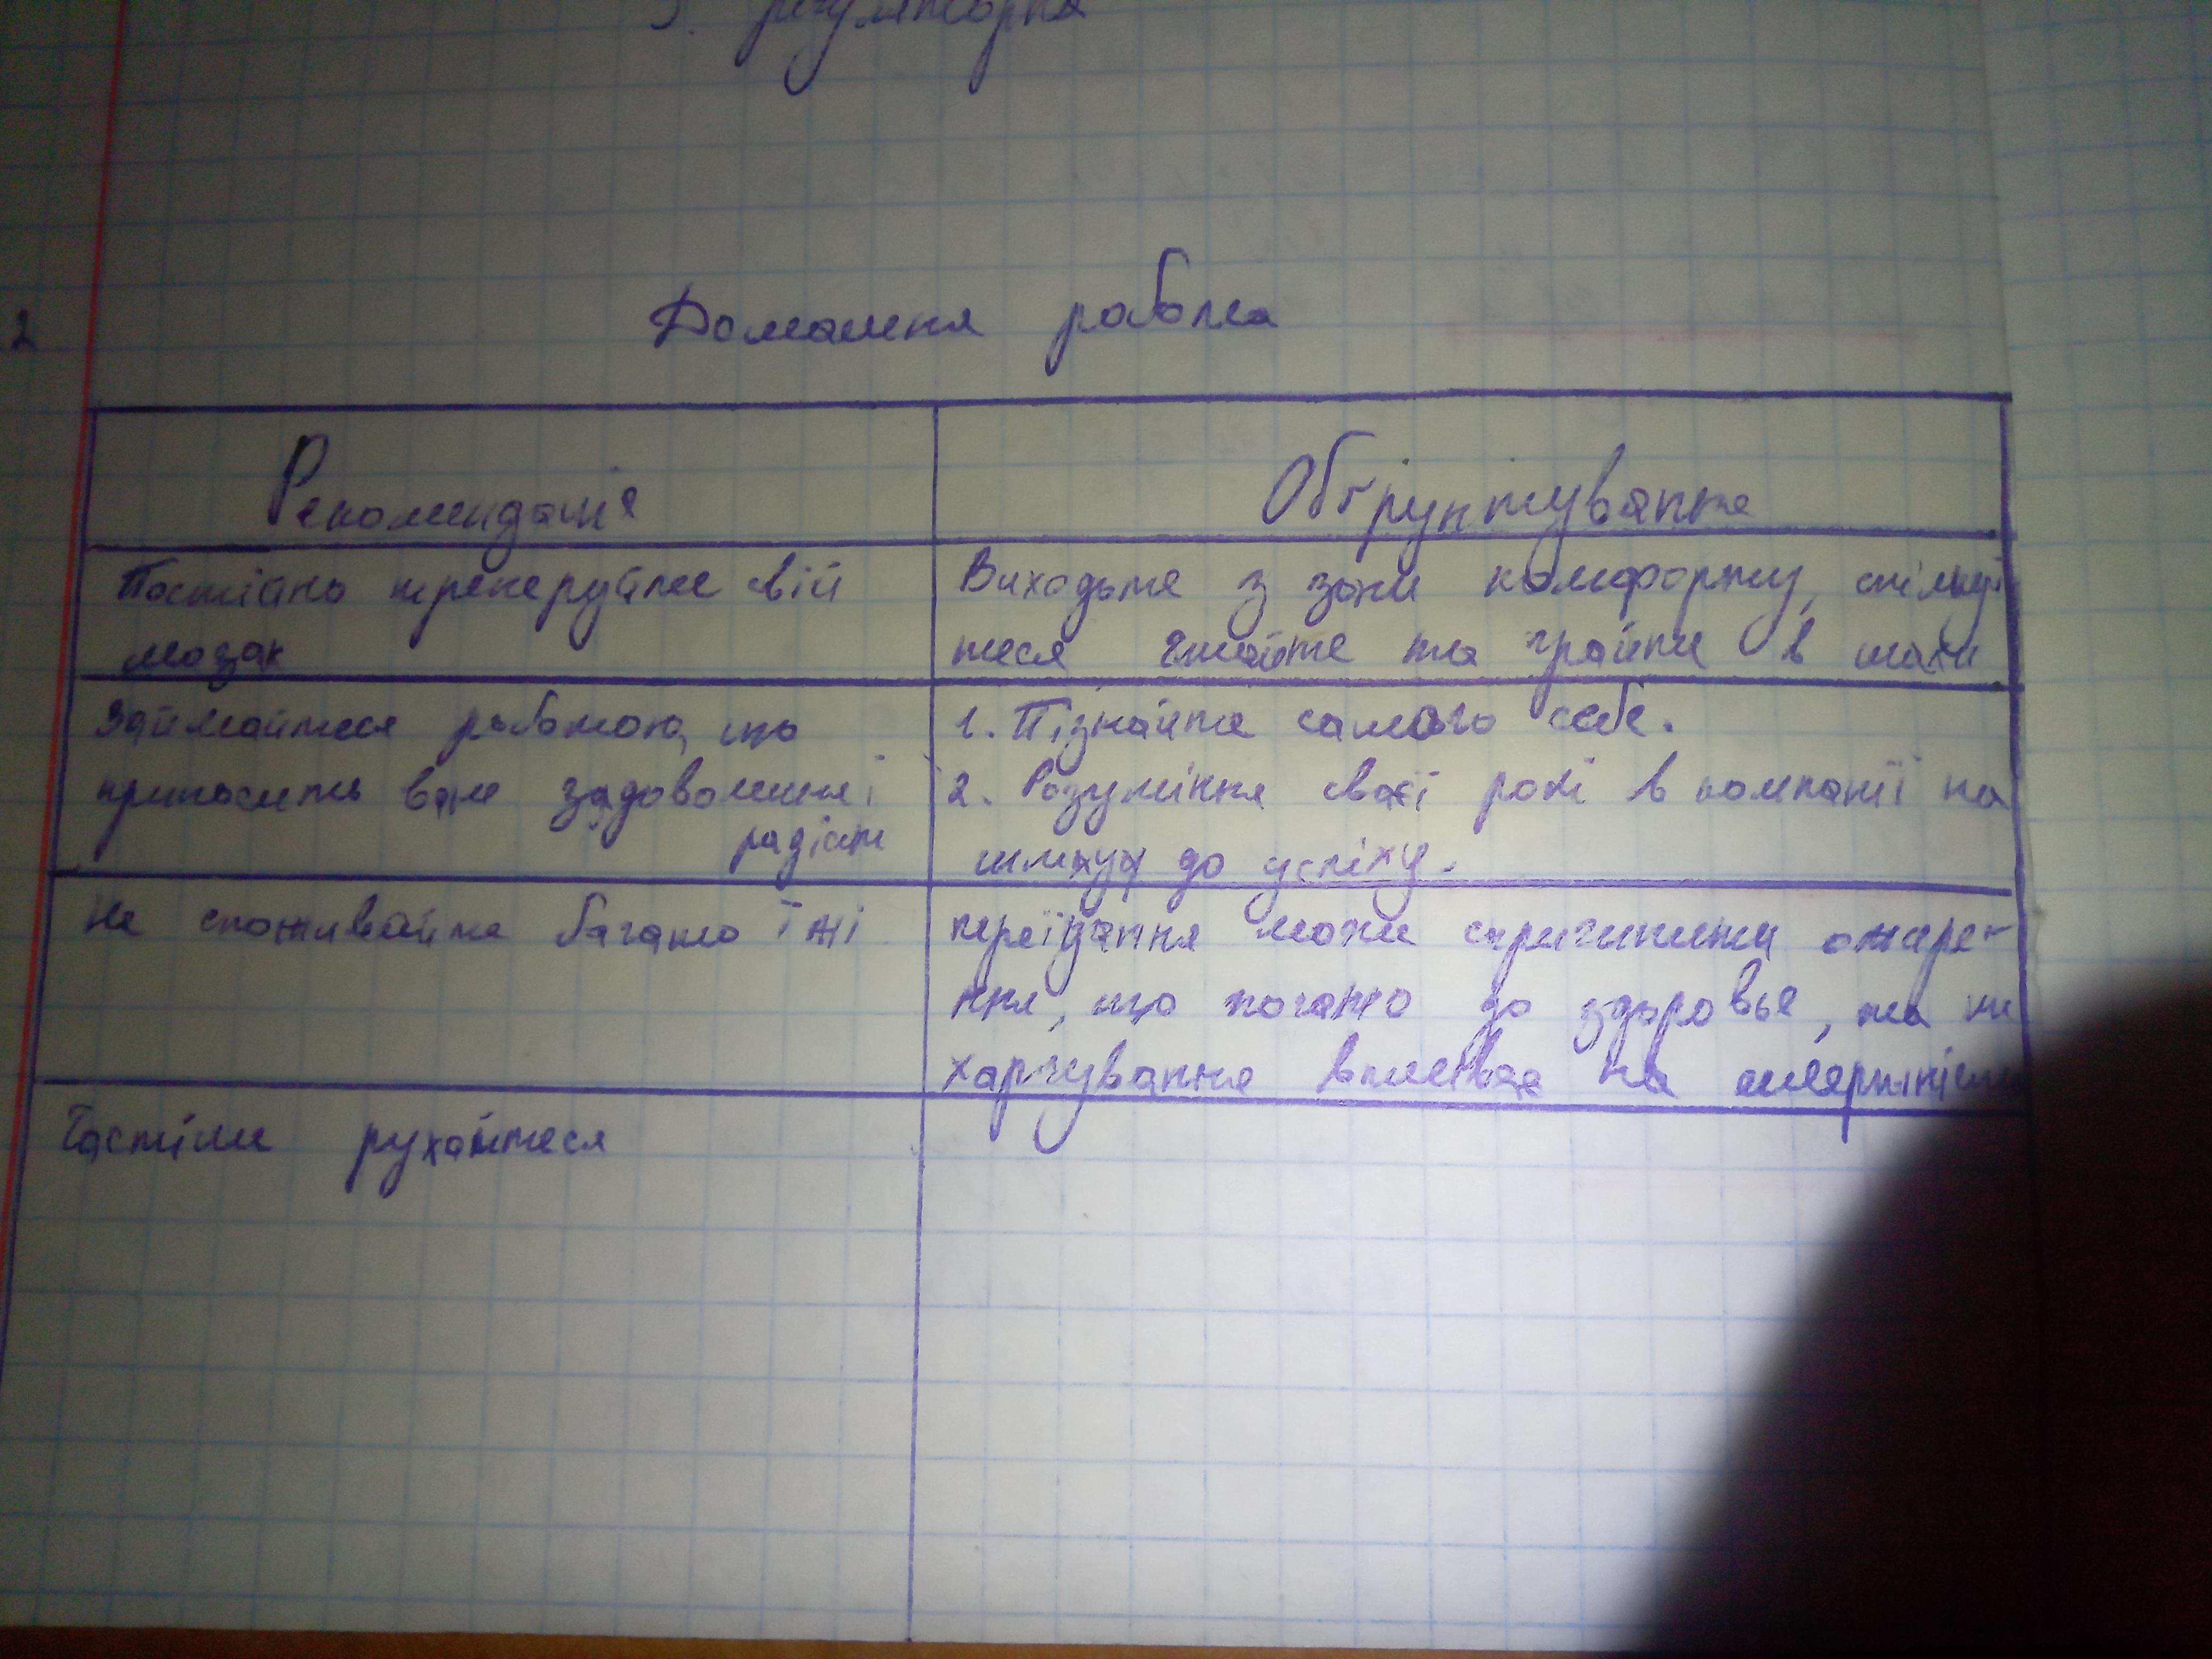 3. регуляторна
2
Домашня робота
Рекомендація
Обґрунтування
Постійно тренеруйте свій
мозак
Виходьте з зони комфорту, спілкуй
теся читайте та грайти в шахи
Займайтеся роботою, що
приносить вам задоволення і
радість
1. Пізнайте самого себе.
2. Розуміння своєї ролі в компанії на
шляху до успіху.
Не споживайте багато їжі
переїдання може спричинити ожире-
ння, що погано до здоровья, та не
харчування впливає на смертність
Частіше рухайтеся